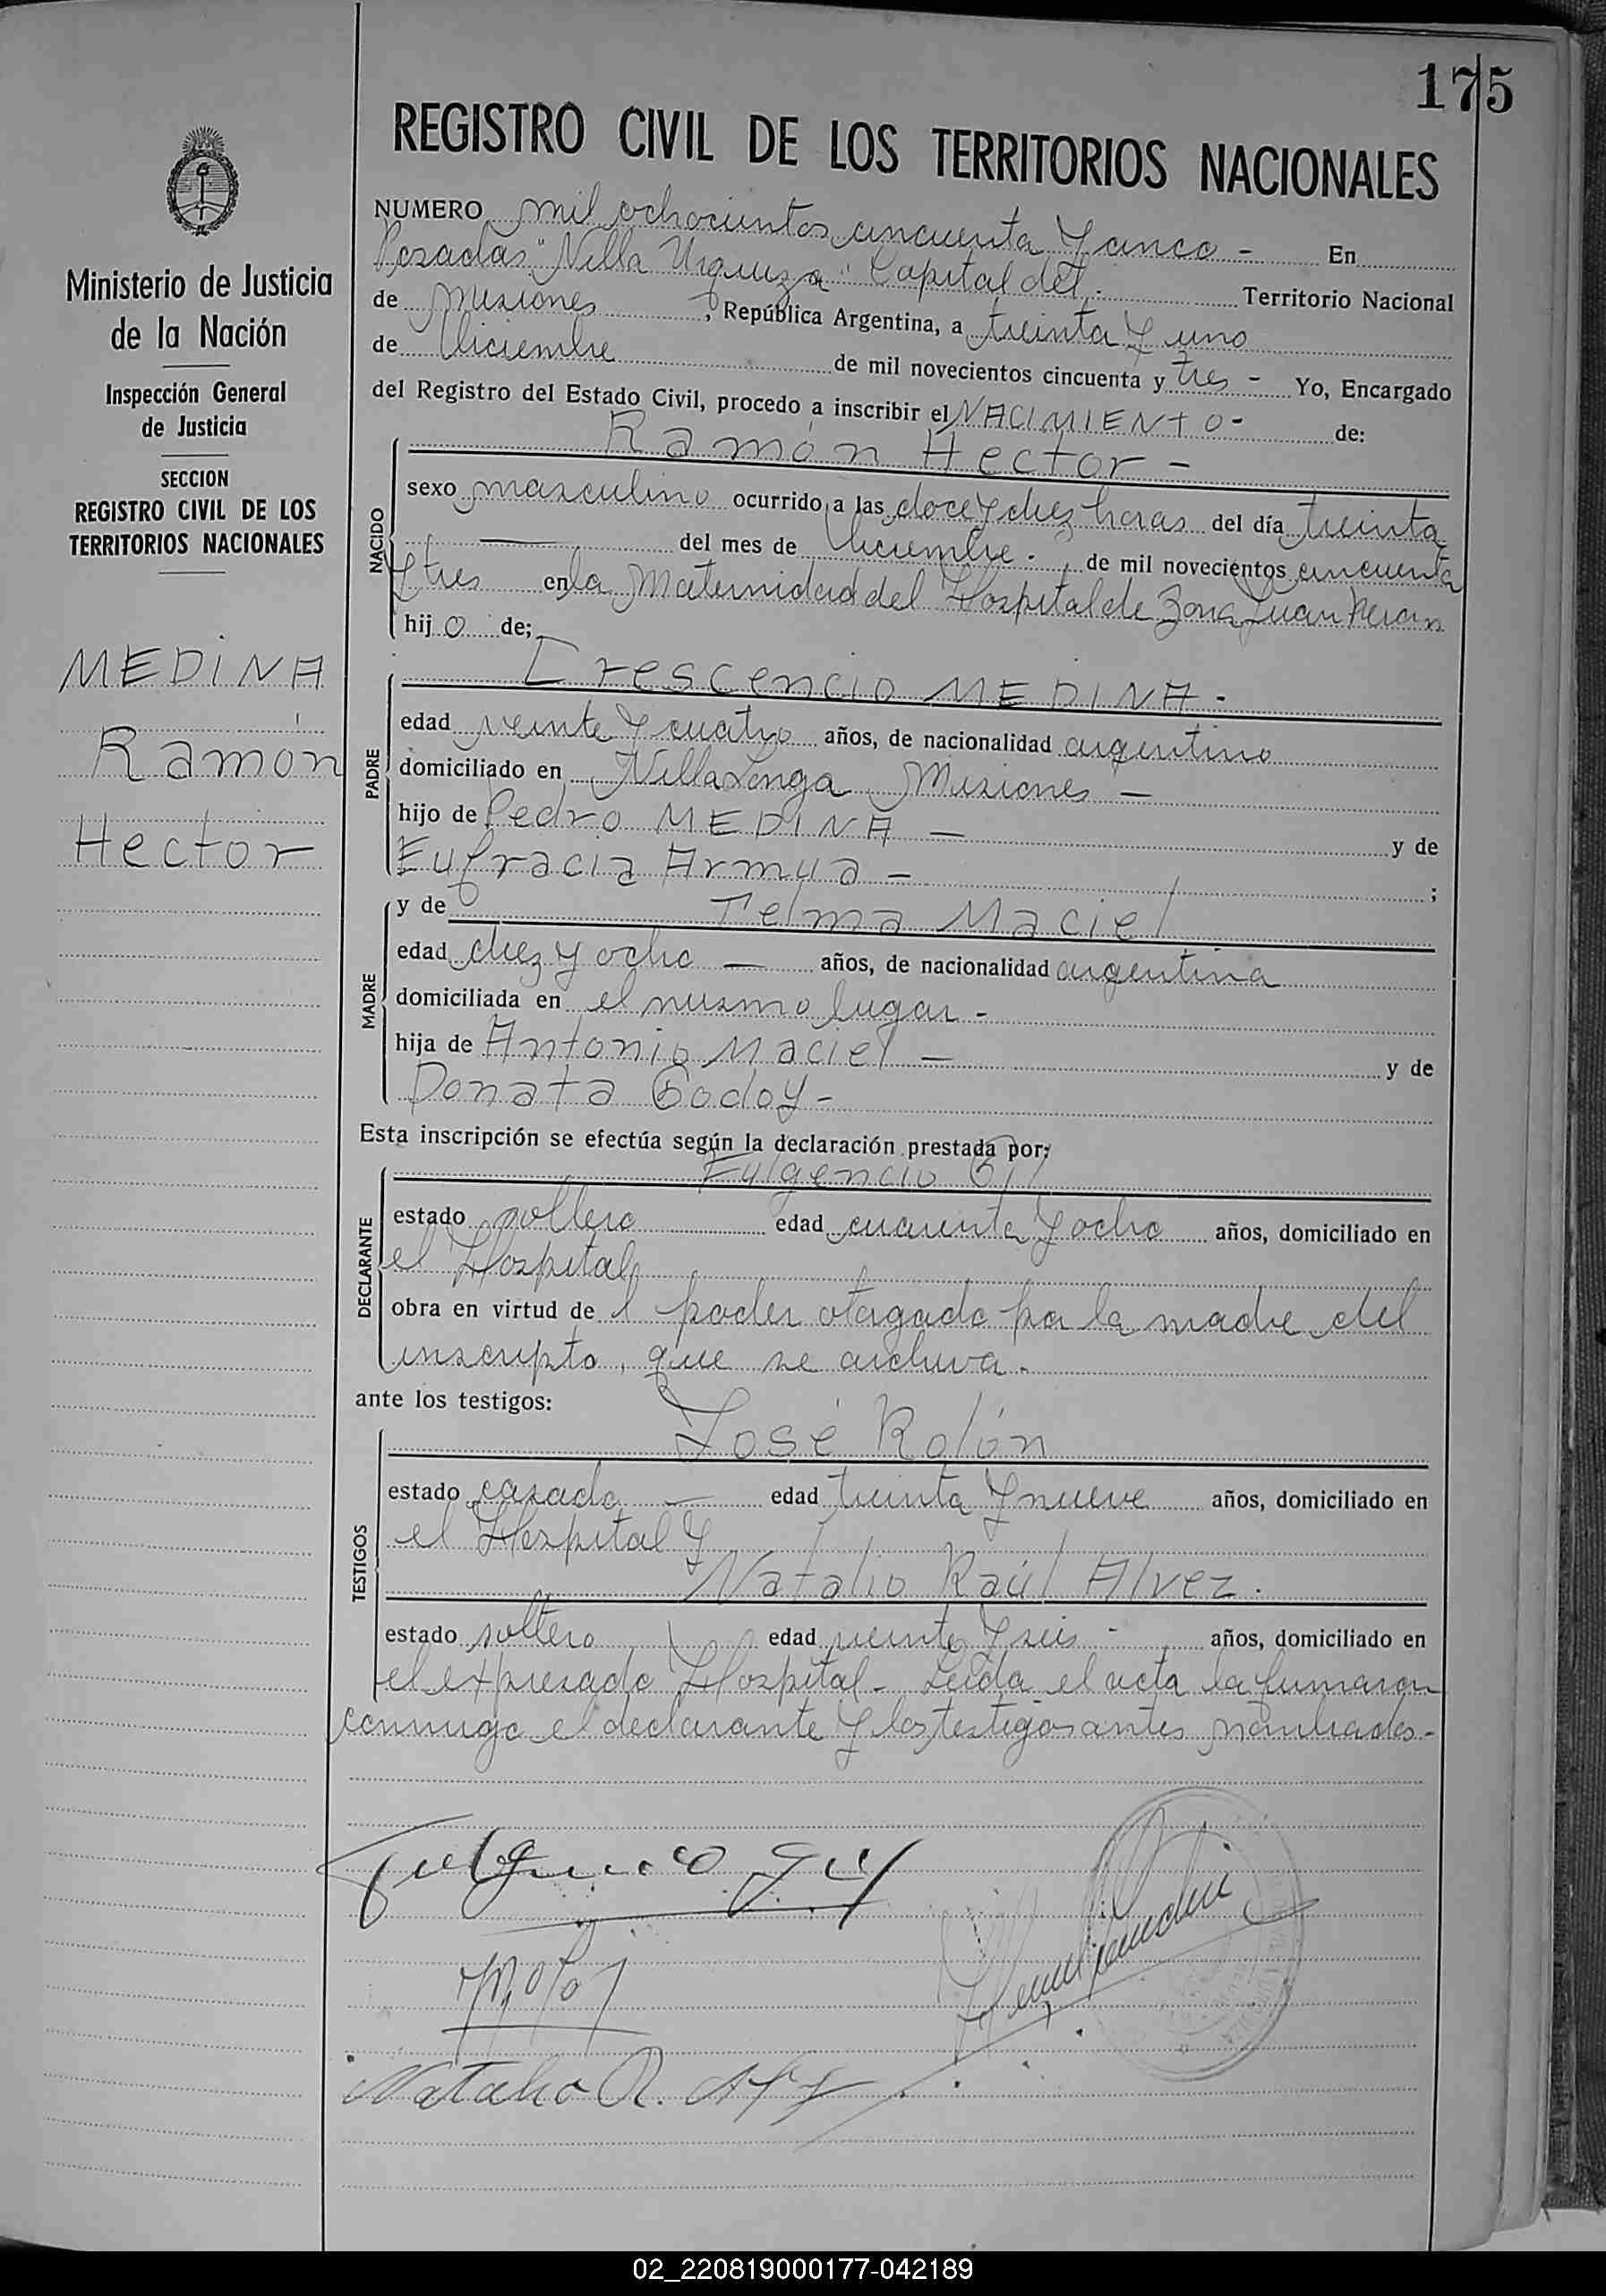 175
REGISTRO CIVIL DE LOS TERRITORIOS NACIONALES
Ministerio de Justicia
de la Nación
Inspección General
de Justicia
SECCION
REGISTRO CIVIL DE LOS
TERRITORIOS NACIONALES
MEDINA
Ramón
Hector
NUMERO mil ochocientos cincuenta y cinco - En
Posadas "Villa Urquiza" Capital del Territorio Nacional
de Misiones, República Argentina, a treinta y uno
de Diciembre de mil novecientos cincuenta y tres - Yo, Encargado
del Registro del Estado Civil, procedo a inscribir el NACIMIENTO - de:
Ramón Hector -
NACIDO
sexo masculino ocurrido a las doce y diez horas del día treinta
— del mes de Diciembre - de mil novecientos cincuenta
y tres en la Maternidad del Hospital de Zona Juan Peron
hijo de;
Crescencio MEDINA -
PADRE
edad veinte y cuatro años, de nacionalidad argentino
domiciliado en Villa Longa Misiones —
hijo de Pedro MEDINA — y de
Eufracia Armua - ;
MADRE
y de Telma Maciel
edad diez y ocho — años, de nacionalidad argentina
domiciliada en el mismo lugar -
hija de Antonio Maciel — y de
Donata Godoy -
Esta inscripción se efectúa según la declaración prestada por:
Fulgencio Gil
DECLARANTE
estado soltero edad cuarenta y ocho años, domiciliado en
el Hospital
obra en virtud del poder otorgado por la madre del
inscripto, que se archiva -
ante los testigos:
José Rolón
TESTIGOS
estado casado — edad treinta y nueve años, domiciliado en
el Hospital y
Natalio Raúl Alvez.
estado soltero edad veinte y seis - años, domiciliado en
el expresado Hospital - Leida el acta la firmaron
conmigo el declarante y los testigos antes nombrados -
Fulgencio Gil
Natalio R.
02_220819000177-042189